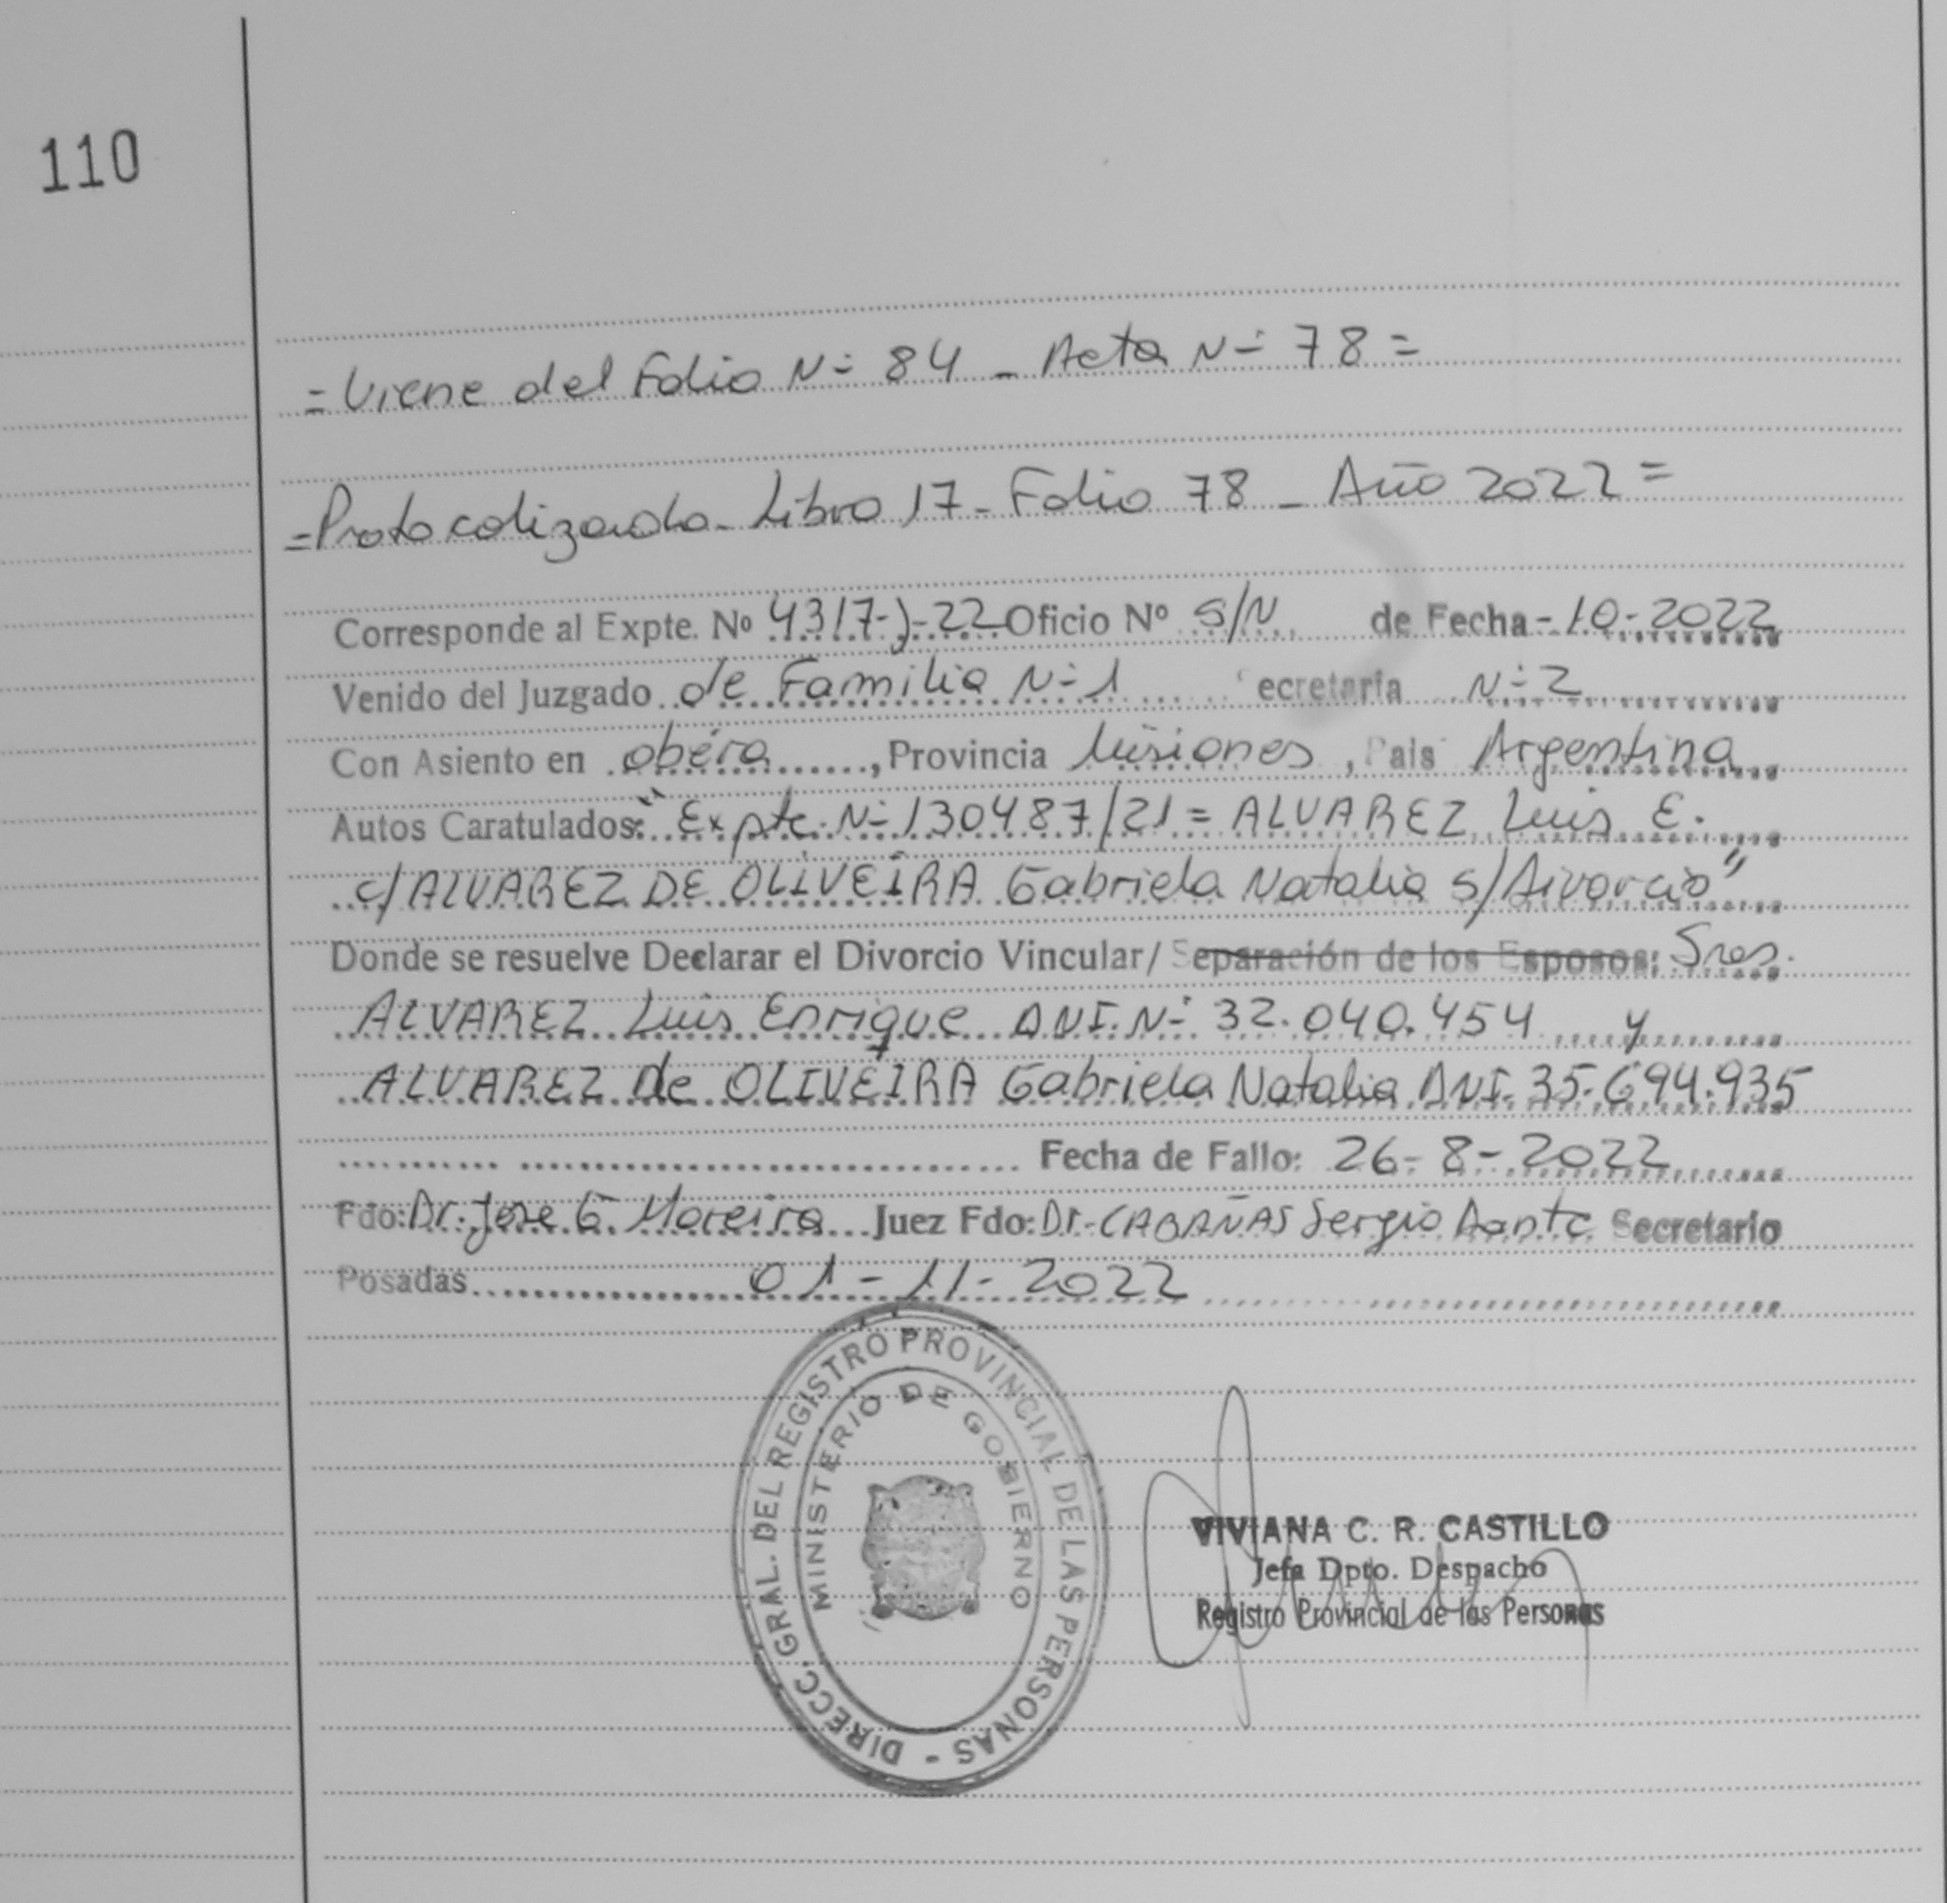 110
= Viene del Folio N= 84 - Acta N= 78 =
= Protocolizado - Libro 17 - Folio 78 - Año 2022 =
Corresponde al Expte. Nº 4317-J-22 Oficio Nº S/N de Fecha - 10-2022
Venido del Juzgado de Familia N=1 ecretaría N=2
Con Asiento en oberá, Provincia Misiones, Pais Argentina
Autos Caratulados: "Expte. N=130487/21 = ALVAREZ Luis E.
c/ ALVAREZ DE OLIVEIRA Gabriela Natalia s/Divorcio"
Donde se resuelve Declarar el Divorcio Vincular/ Separación de los Esposos: Sres.
ALVAREZ Luis Enrique DNI. N= 32.040.454 y
ALVAREZ de OLIVEIRA Gabriela Natalia DNI. 35.694.935
Fecha de Fallo: 26-8-2022
Fdo: Dr. Jose G. Moreira Juez Fdo: Dr. CABAÑAS Sergio Dante Secretario
Posadas 01-11-2022
DIRECC. GRAL. DEL REGISTRO PROVINCIAL DE LAS PERSONAS -
MINISTERIO DE GOBIERNO
VIVIANA C. R. CASTILLO
Jefa Dpto. Despacho
Registro Provincial de las Personas